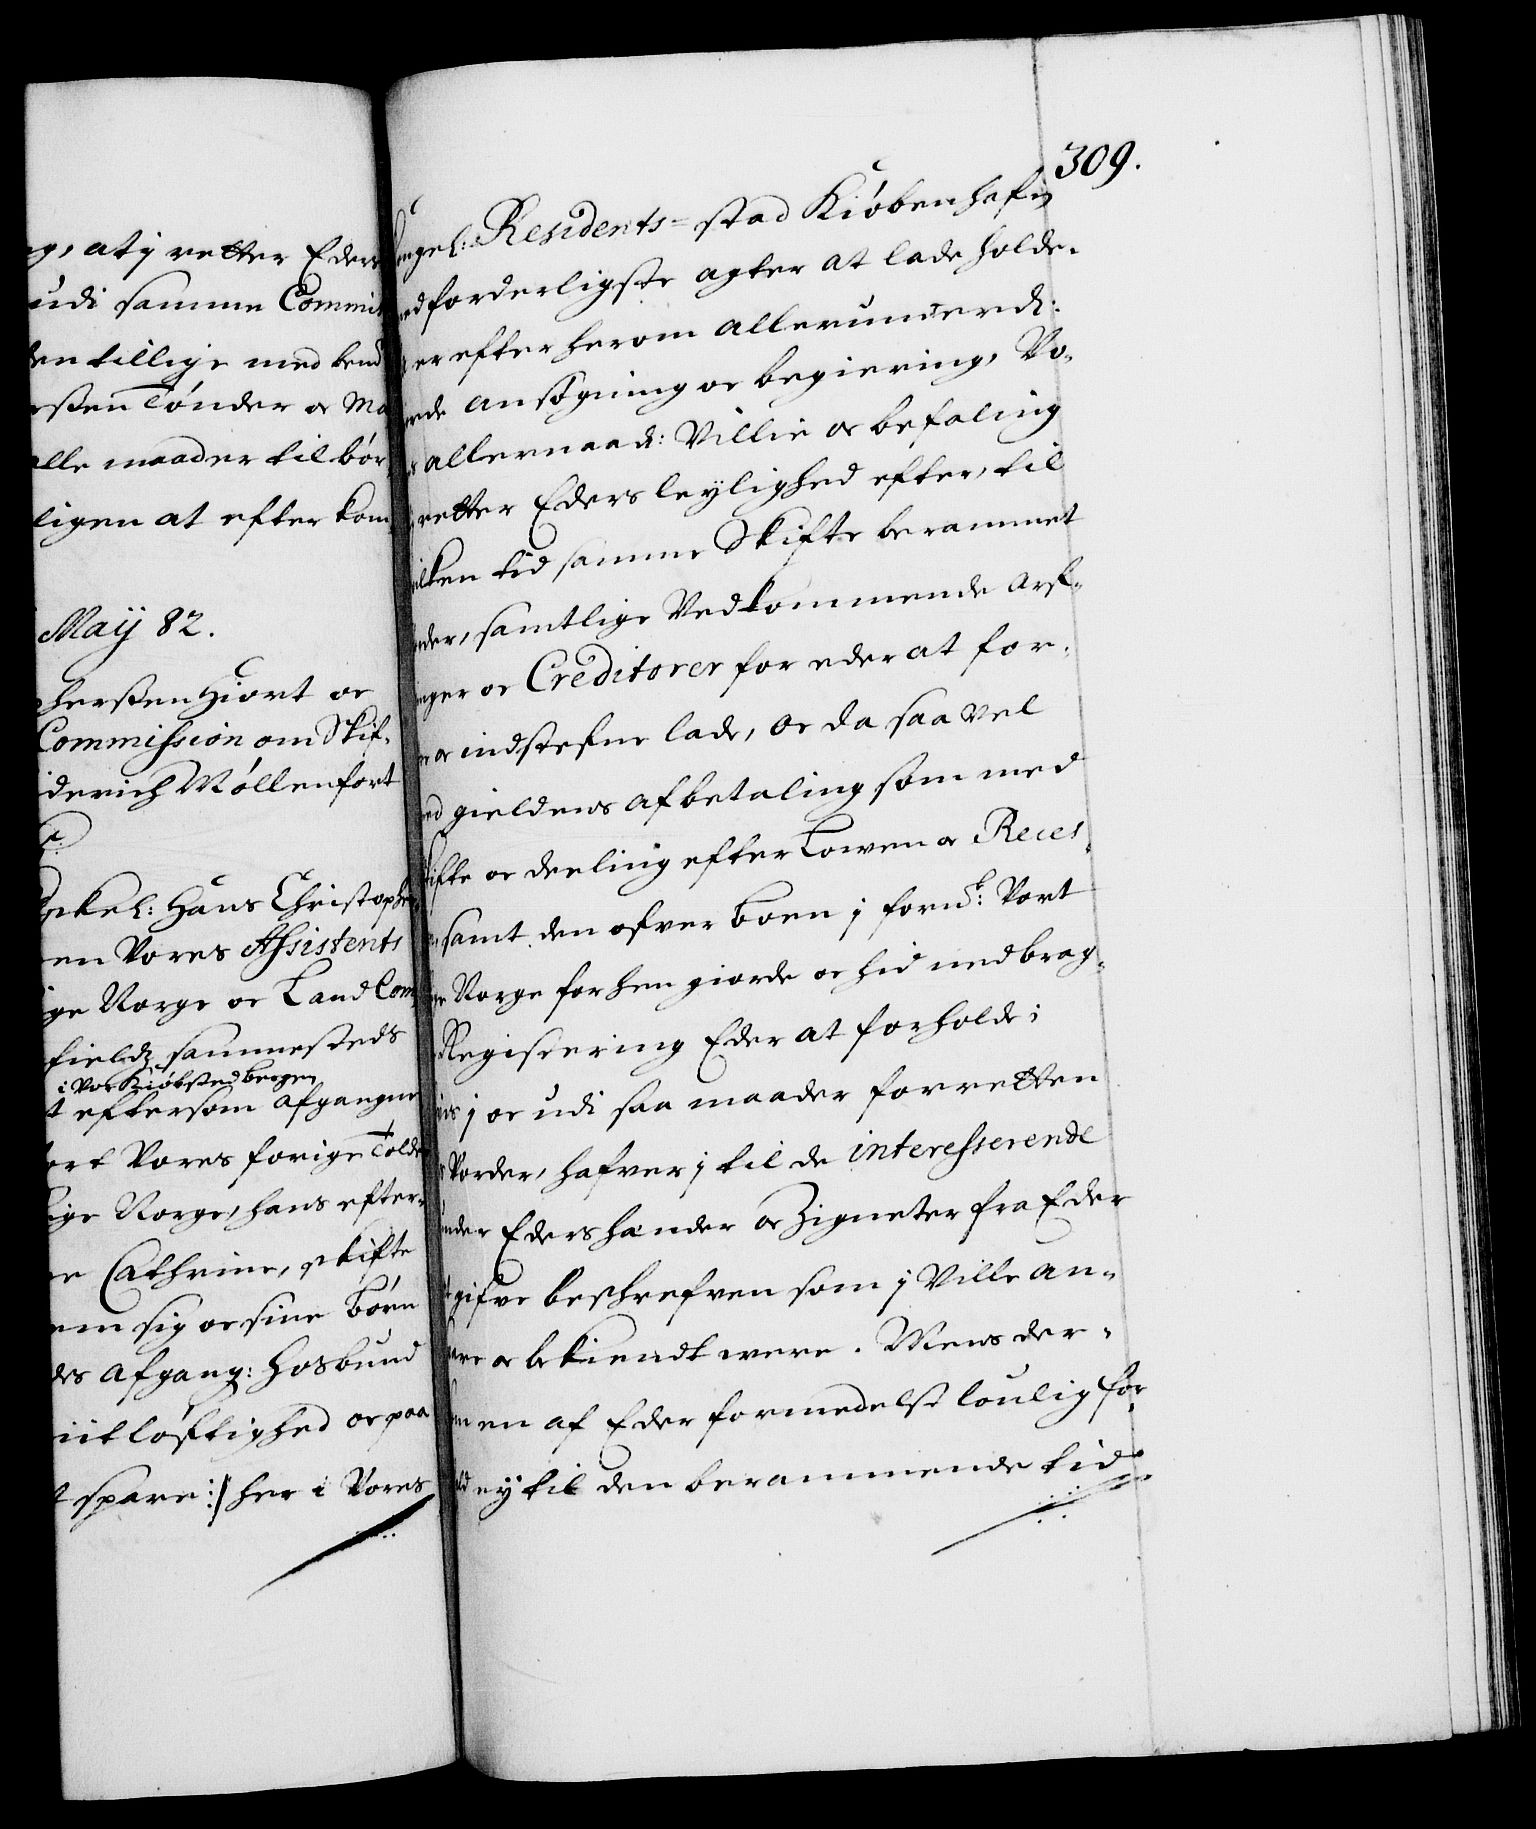 at j retter Eders
udi samme Commis
den tillige med bem
rßen Tønder oc Ma
alle maader tilbør
ligen at efterkom
Maij 82.
pherßen Hiort oc
Commission om Skif-
iderich Møllenfort
Hans Christophe
en Vores Assistents
ge Norge oc Land Com
fieldz sammesteds
i Vor Kiøbsted Bergen
t eftersom afgangne
ort Vores forige Tolde
ige Norge, hans efter-
e Cathrine, skifte
em sig oc sine børn
des afgang: Hosbund
iitløftighed oc paa
t spare :/ her i Vores
309.
ongel: Residents-stad Kiøbenhafn
ed forderligste agter at lade holde.
er efter herom allerunderd:
ende ansøgning oc begiering, Vo-
s allernaad: Villie oc befaling
retter Eders leylighed efter, til
ilken tid samme Skifte berammet
nder, samtlige Vedkommende Arf-
nger oc Creditorer for eder at for-
e oc indstefne lade, oc da saa vel
ed gieldens afbetaling som med
kifte oc deeling efter Lowen oc Reces-
samt den ofver boen j fornd: Vort
ge Norge forhen giorde oc hid nedbrag-
Registering Eder at forholde;
is j oc udi saa maader forretten
s Vorder, hafver j til de interesserende
under Eders hænder oc Zigneter fra Eder
t gifve beskrefven som j Ville an-
vare oc bekiendt were. Mens der-
om en af Eder formedelst loulig for
ld ey til den berammende tid